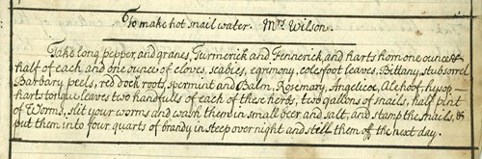 To make hot snail water. Mrs Wilson.
Take long pepper, and granes, Turmerick and Fennerick, and harts horn one ounce &
half of each and one ounce of cloves, scabies, egrimony, colesfoot leaves, Bittany, stubsorrel
Barbary peels, red dock roots, spermint and Balm, Rosemary, Angelicoe, Alehoof hysop
hartstongue leaves two handfulls of each of these herbs, two gallons of snails, half pint
of Worms, slit your worms and wash them in small beer and salt, and stamp the snails, &
put them into four quarts of brandy in steep over night and still them off the next day.